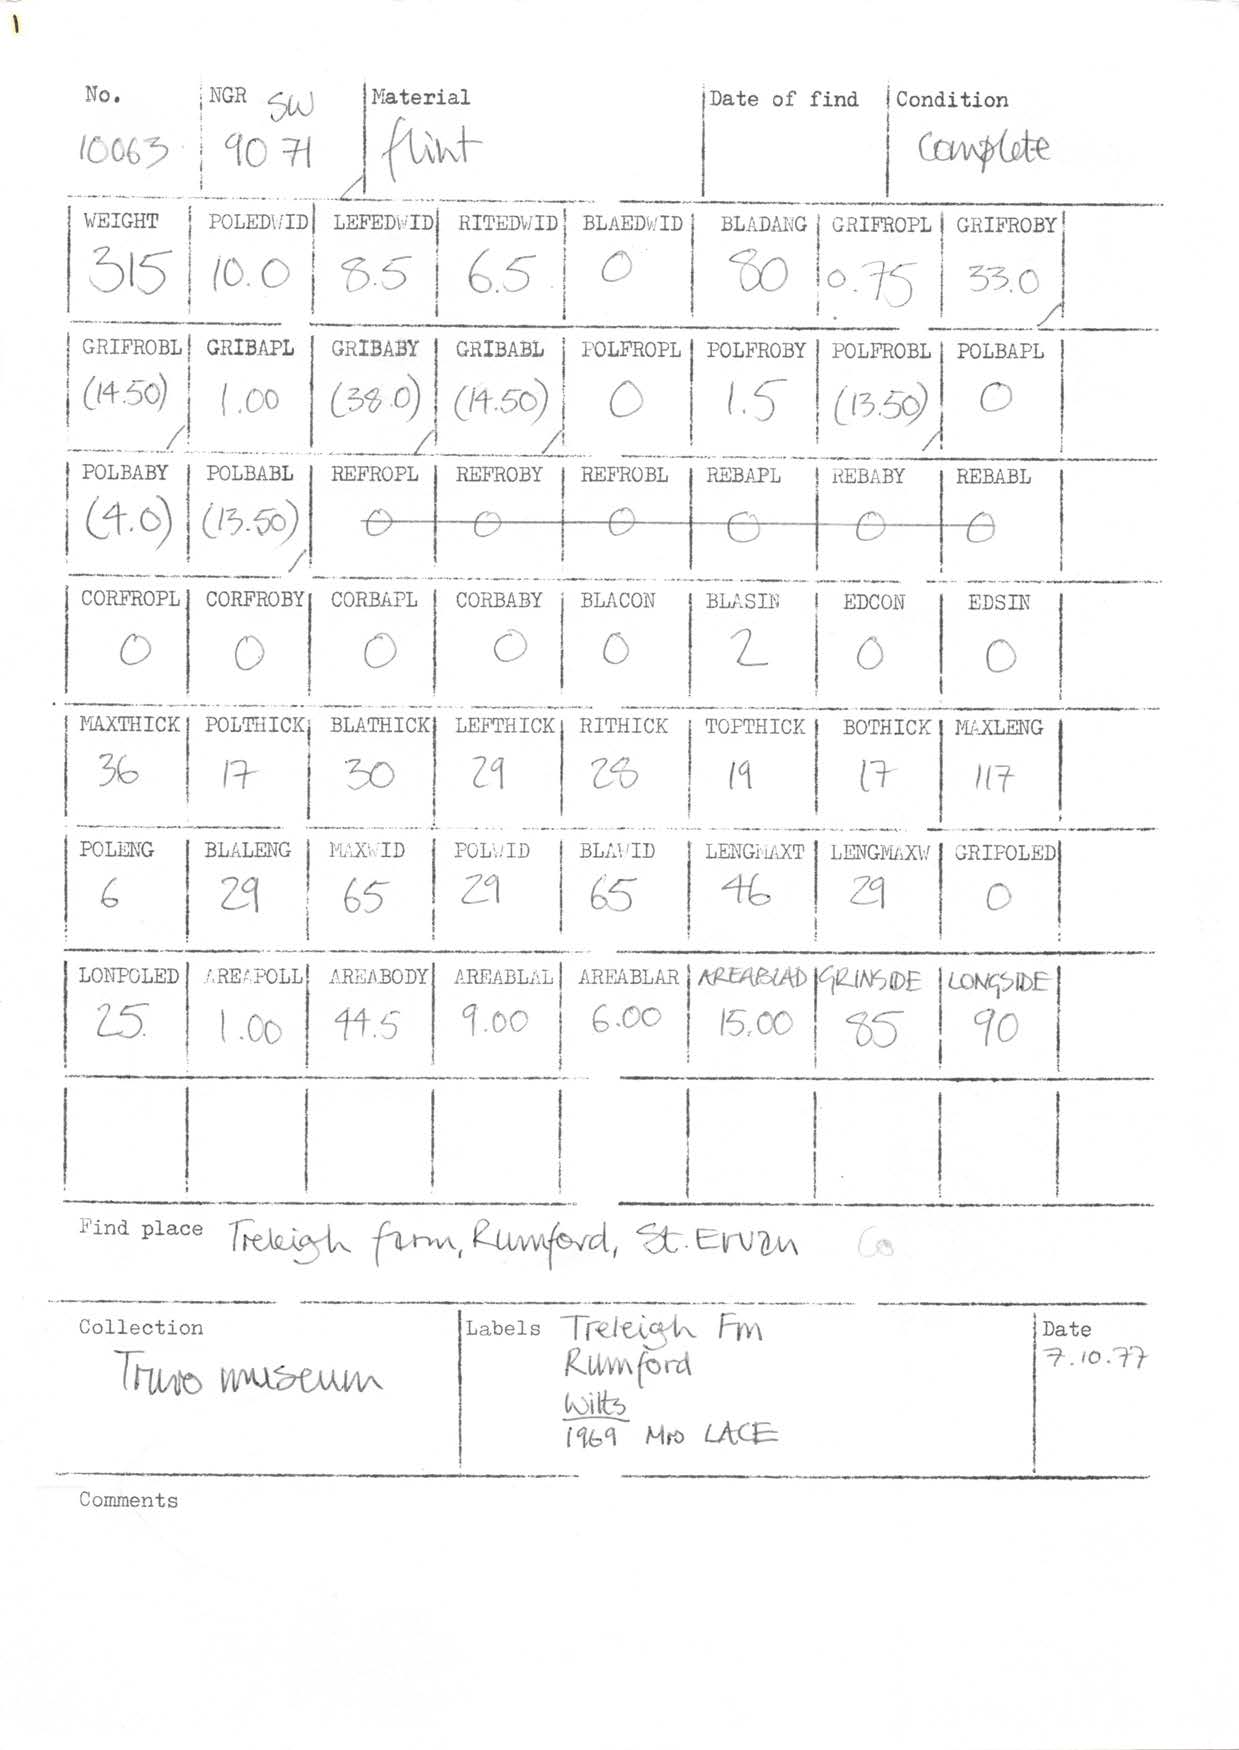 1
No. NGR SW Material Date of find Condition
10063 90 71 flint complete
WEIGHT POLEDWID LEFEDWID RITEDWID BLAEDWID BLADANG GRIFROPL GRIFROBY
315 10.0 8.5 6.5 0 80 0.75 33.0
GRIFROBL GRIBAPL GRIBABY GRIBABL POLFROPL POLFROBY POLFROBL POLBAPL
(14.50) 1.00 (38.0) (14.50) 0 1.5 (13.50) 0
POLBABY POLBABL REFROPL REFROBY REFROBL REBAPL REBABY REBABL
(4.0) (13.50) 0 0 0 0 0 0
CORFROPL CORFROBY CORBAPL CORBABY BLACON BLASIN EDCON EDSIN
0 0 0 0 0 2 0 0
MAXTHICK POLTHICK BLATHICK LEFTHICK RITHICK TOPTHICK BOTHICK MAXLENG
36 17 30 29 28 19 17 117
POLENG BLALENG MAXWID POLWID BLAWID LENGMAXT LENGMAXW GRIPOLED
6 29 65 29 65 46 29 0
LONPOLED AREAPOLL AREABODY AREABLAL AREABLAR AREABLAD GRINSIDE LONGSIDE
25. 1.00 44.5 9.00 6.00 15.00 85 90
Find place Treleigh farm, Rumford, St. Ervan Co
Collection Labels Treleigh Fm Date
Truro museum Rumford 7.10.77
Wilts
1969 Mrs LACE
Comments